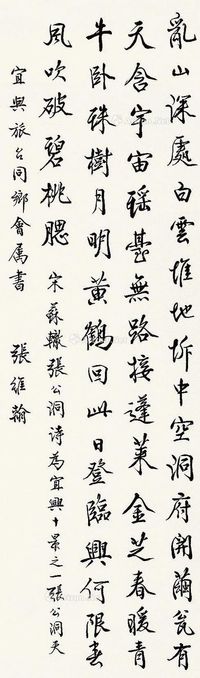 亂山深處白雲堆地坼中空洞府開繭瓮有
天含宇宙瑤臺無路接蓬萊金芝春暖青
牛卧珠樹月明黃鶴回此日登臨興何限春
風吹破碧桃腮 宋蘇轍張公洞詩為宜興十景之一張公洞天
宜興旅台同鄉會属書 張維翰